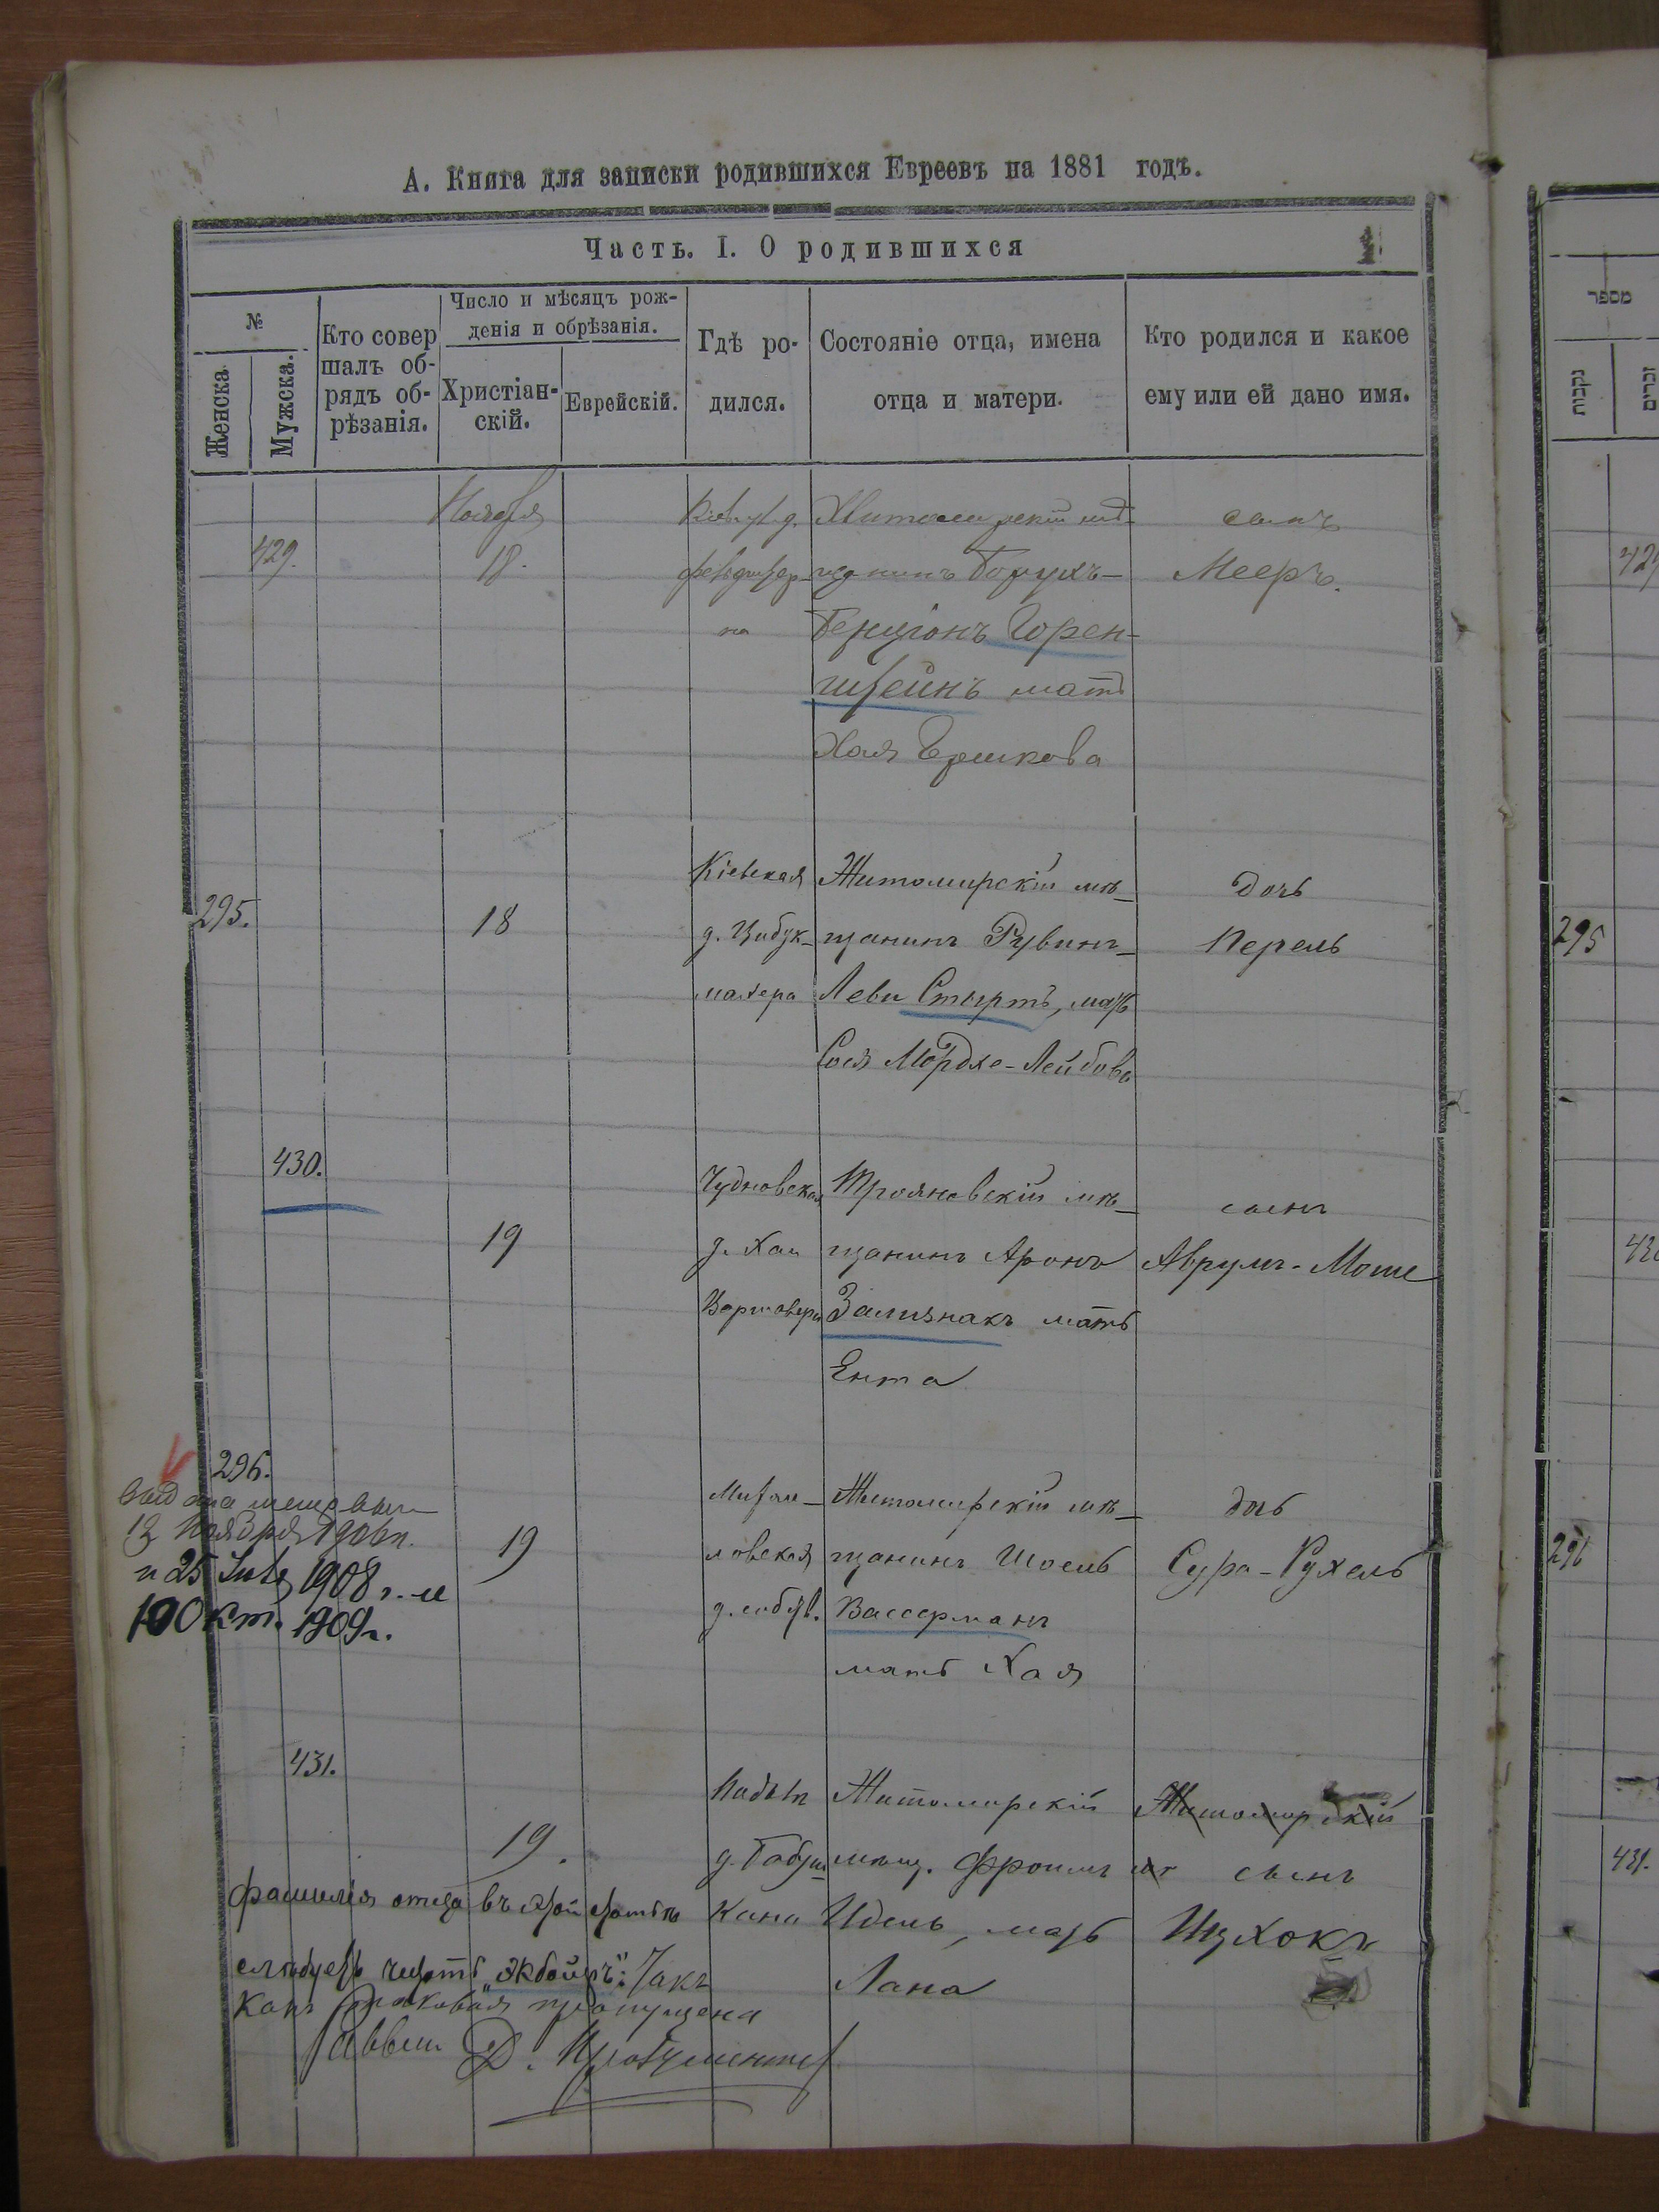 А. Книга для записки родившихся Евреевъ на 1881 годъ.
Часть. I. О родившихся
№
Женска.
Мужска.
Кто совер
шалъ об-
рядъ об-
рѣзанія.
Число и мѣсяцъ рож-
денія и обрѣзанія.
Христіан-
скій.
Еврейскій.
Гдѣ ро-
дился.
Состояніе отца, имена
отца и матери.
Кто родился и какое
ему или ей дано имя.
מספר
נקבות
זכרים
429.
Ноября
18.
Житомирскій мѣ-
щанинъ Борухъ-
Бенціонъ Горен-
штейнъ мать
Хая Гершкова
сынъ
Мееръ.
295.
18
Кіевская
д. Цибук-
махера
Житомирскій мѣ-
щанинъ Рувинъ-
Леви Стыртъ, мать
Сося Мордхе-Лейбова
дочь
Перель
295
430.
19
Чудновская
д. Хаи
Трояновскій мѣ-
щанинъ Аронъ
Зализнакъ мать
Ента
сынъ
Аврумъ-Моше
296.
12 Ноября 1906 г.
и 25 1908 г. и
10 Окт. 1909 г.
19
Михай-
ловская
д. собств.
Житомирскій мѣ-
щанинъ Шоель
Вассерманъ
мать Хая
дочь
Сура-Рухель
296
431.
19.
д. Бабуш-
кина
Житомирскій
мѣщ. Фроимъ
Идель, мать
Лана
Житомирскій
сынъ
Ицхокъ
431.
фамилія отца въ этой статьѣ
слѣдуетъ читать „Жбойръ“. Такъ
какъ таковая пропущена
Раввинъ